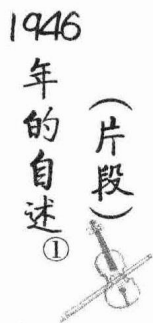 1946
年的自述①
（片段）